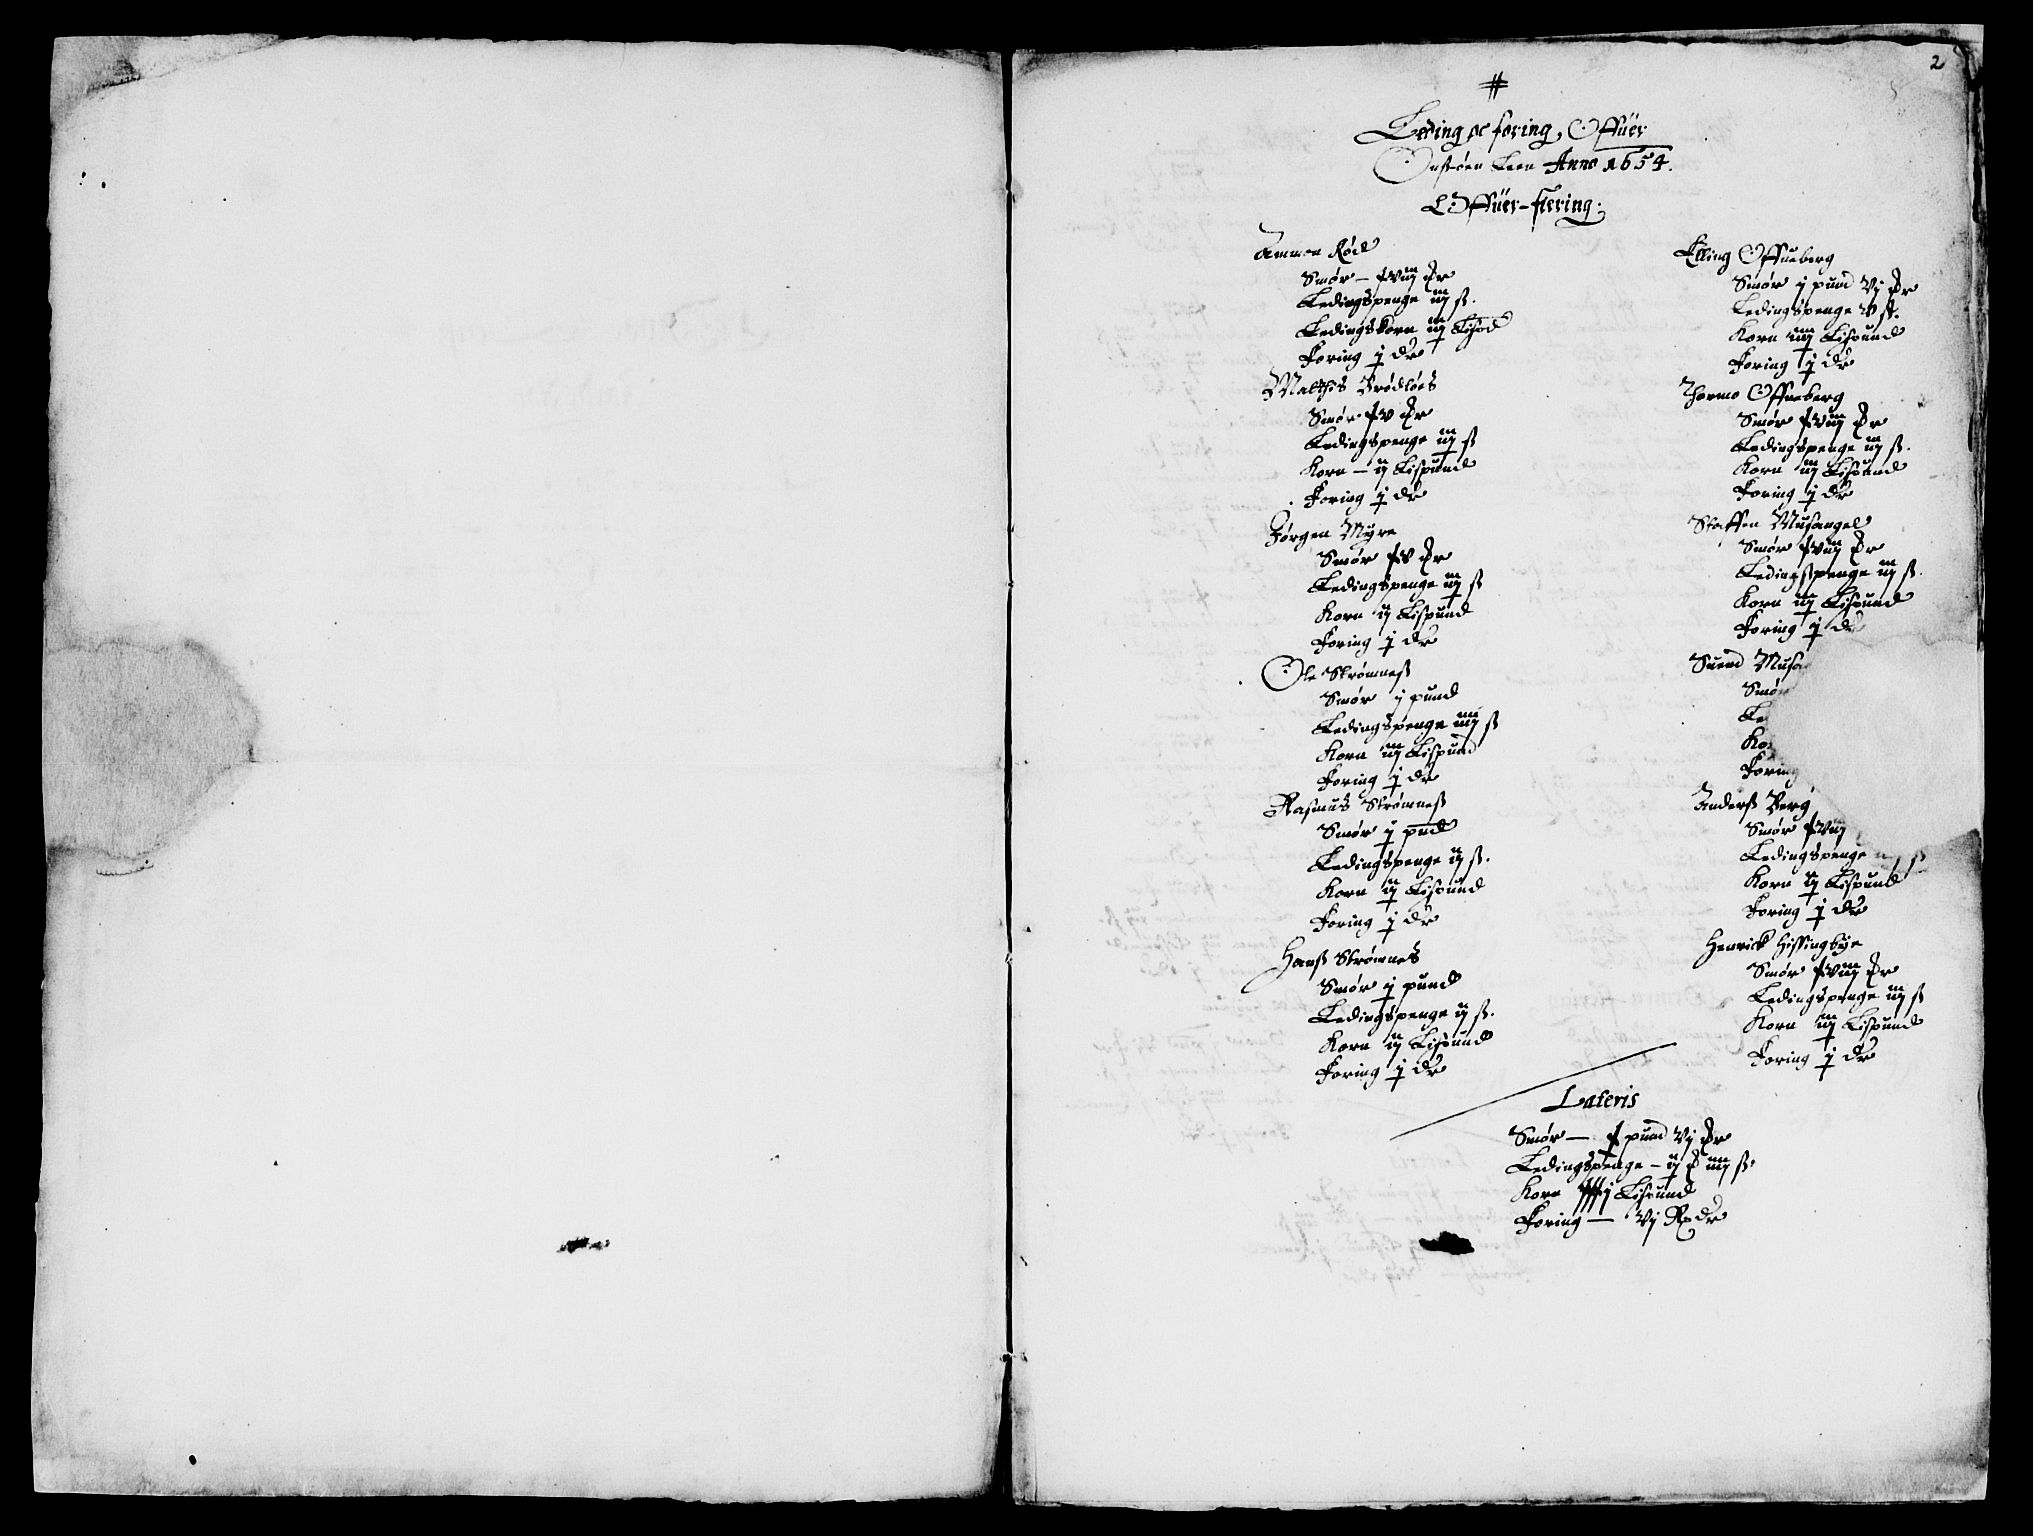 2
Leding oc foring, Offuer
Onsøen Leen Anno 1654.
Offuer-fiering.
Ammon Rød
Smør – xviij mr
Ledingspenge iiij ß.
Ledingskorn iij Lispd
Foring j dr
Matthis Brødløes
Smør xv mr
Ledingspenge iij ß
Korn – ij Lispund
Foring j dr
Jørgen Myre
Smør xv mr
Ledingspenge iij ß
Korn ij Lispund
Foring j dr
Ole Strømneß
Smør j pund
Ledingspenge iiij ß
Korn iij Lispund
Foring j dr
Rasmus Strømneß
Smør j pund
Ledingspenge ij ß.
Korn ij Lispund
Foring j dr
Hanß Strømnes
Smør j pund
Ledingspenge ij ß.
Korn ij Lispund
Foring j dr
Elling Offueberg
Smør j pund vj mr
Ledingspenge v ß.
Korn iiij Lispund
Foring j dr
Thormo Offueberg
Smør xviij mr
Ledingspenge iij ß.
Korn iij Lispund
Foring j dr
Staffen Musangel
Smør xviij mr
Ledingspenge iij ß.
Korn iij Lispund
Foring j dr
Suend Musa
Smør
Le
Ko
Foring
Anderß Berg
Smør xvij
Ledingspenge ij ß
Korn ij Lispund
Foring j dr
Henrick Hissingbye
Smør xviij mr
Ledingspenge iij ß
Korn iij Lispund
Foring j dr
Lateris
Smør – x pund vj mr
Ledingspenge – ij mr iiij ß.
Korn xxxj Lispund
Foring – vj Rxdr